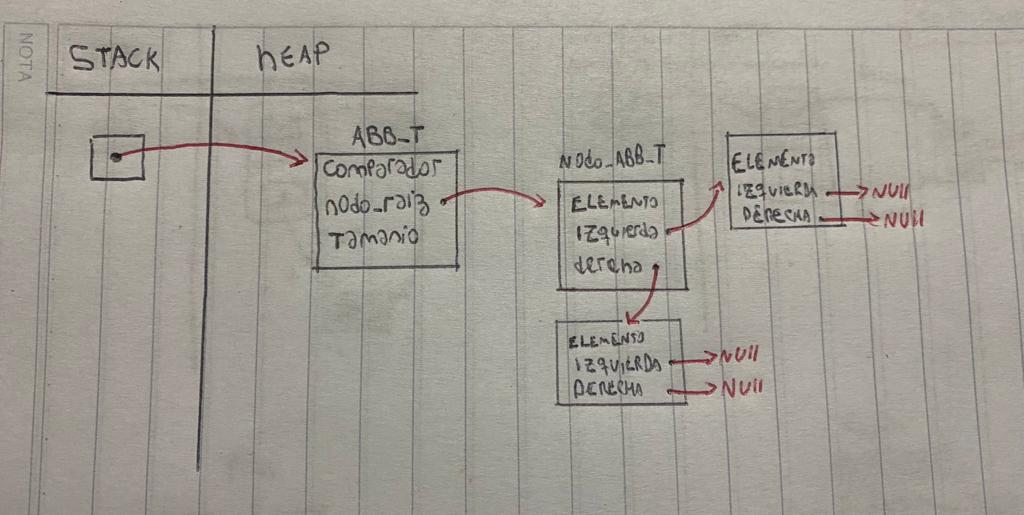 NOTA
STACK
hEAP
ABB_T
Comparador
nodo_raiz
Tamanio
Nodo_ABB_T
ELEMENTO
izquierda
derecha
ELEMENTO
IZQUIERDA NUll
DERECHA NUll
ELEMENTO
IZQUIERDA NUll
DERECHA NUll